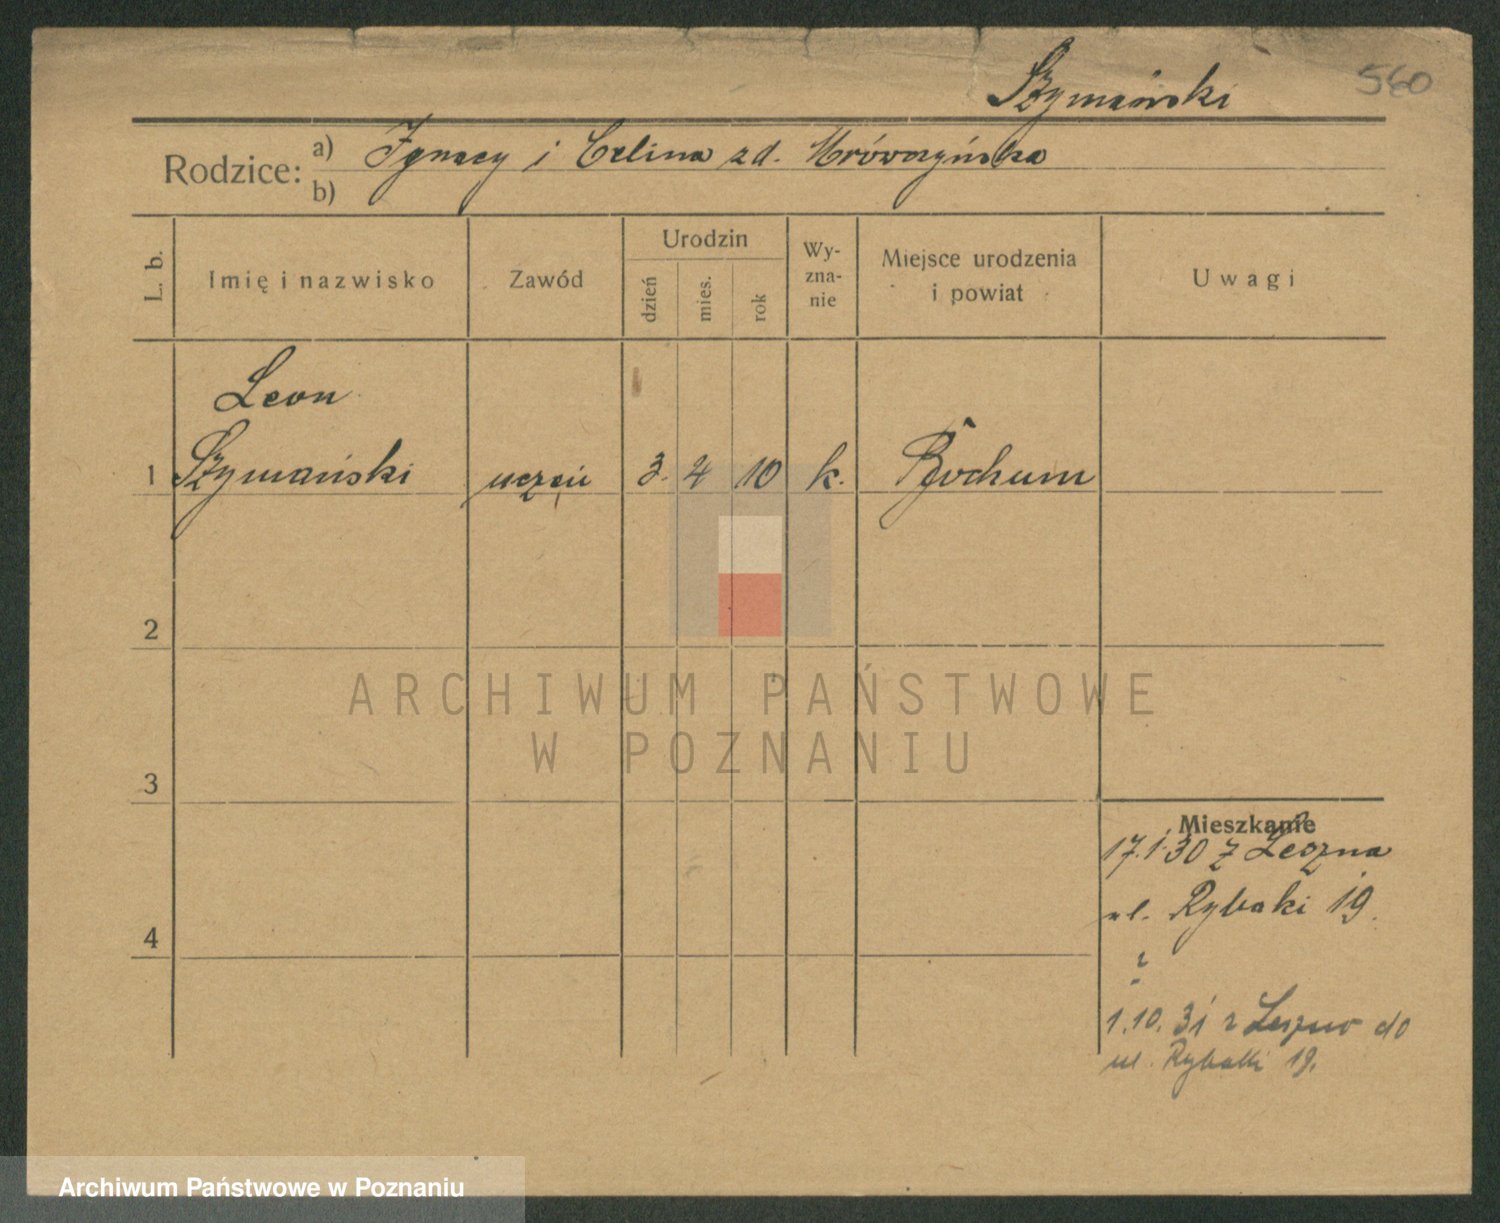 Szymański
560
Rodzice: a) Ignacy i Celina zd. Mrówczyńska
b)
L. b.
Imię i nazwisko
Zawód
Urodzin
dzień
mies.
rok
Wy-
zna-
nie
Miejsce urodzenia
i powiat
Uwagi
Leon
1 Szymański uczeń 3. 4 10 k. Bochum
2
3
4
Mieszkanie
17.1.30 z Leszna
ul. Rybaki 19.
1.10.31 z Leszno do
ul. Rybaki 19.
ARCHIWUM PAŃSTWOWE
W POZNANIU
Archiwum Państwowe w Poznaniu